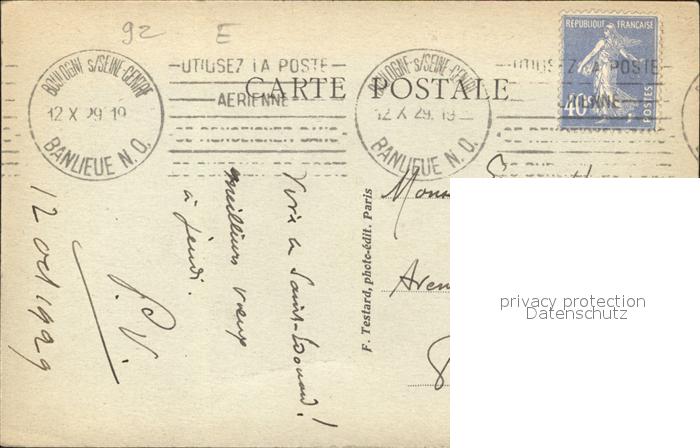 92 E
BOULOGNE S/SEINE-CENTRE
12 X 29. 19
BANLIEUE N.O.
UTILISEZ LA POSTE
AERIENNE
SE RENSEIGNER DANS
BOULOGNE S/SEINE-CENTRE
12 X 29. 19
BANLIEUE N.O.
UTILISEZ LA POSTE
SE RENSEIGNER
CARTE POSTALE
RÉPUBLIQUE FRANÇAISE
40c
POSTES
Vive la Saint-Edouard!
meilleurs vœux
à jeudi.
P.V.
12 oct 1929
F. Testard, photo-édit. Paris
Mons
Aven
privacy protection
Datenschutz